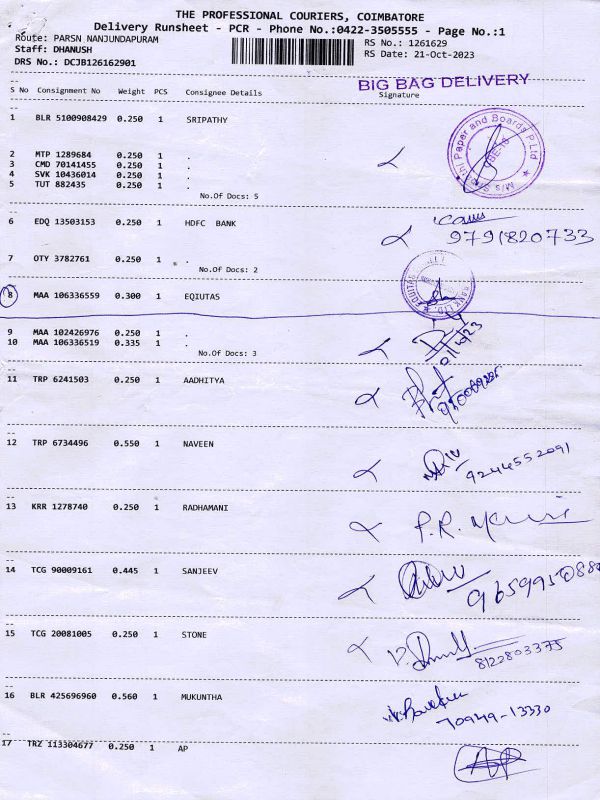 THE PROFESSIONAL COURIERS, COIMBATORE
Delivery Runsheet - PCR - Phone No.:0422-3505555 - Page No.:1
Route: PARSN NANJUNDAPURAM
RS No.: 1261629
Staff: DHANUSH
RS Date: 21-Oct-2023
DRS No.: DCJB126162901
BIG BAG DELIVERY
S No Consignment No Weight PCS Consignee Details Signature
1 BLR 5100908429 0.250 1 SRIPATHY
Paper and Boards P Ltd
2 MTP 1289684 0.250 1 .
3 CMD 70141455 0.250 1 .
4 SVK 10436014 0.250 1 .
5 TUT 882435 0.250 1 .
No.Of Docs: 5
6 EDQ 13503153 0.250 1 HDFC BANK
9791820733
7 OTY 3782761 0.250 1 .
No.Of Docs: 2
8 MAA 106336559 0.300 1 EQIUTAS
9 MAA 102426976 0.250 1 .
10 MAA 106336519 0.335 1 .
No.Of Docs: 3
11 TRP 6241503 0.250 1 AADHITYA
12 TRP 6734496 0.550 1 NAVEEN
9244552091
13 KRR 1278740 0.250 1 RADHAMANI
14 TCG 90009161 0.445 1 SANJEEV
15 TCG 20081005 0.250 1 STONE
8122803375
16 BLR 425696960 0.560 1 MUKUNTHA
70949-13330
17 TRZ 113304677 0.250 1 AP